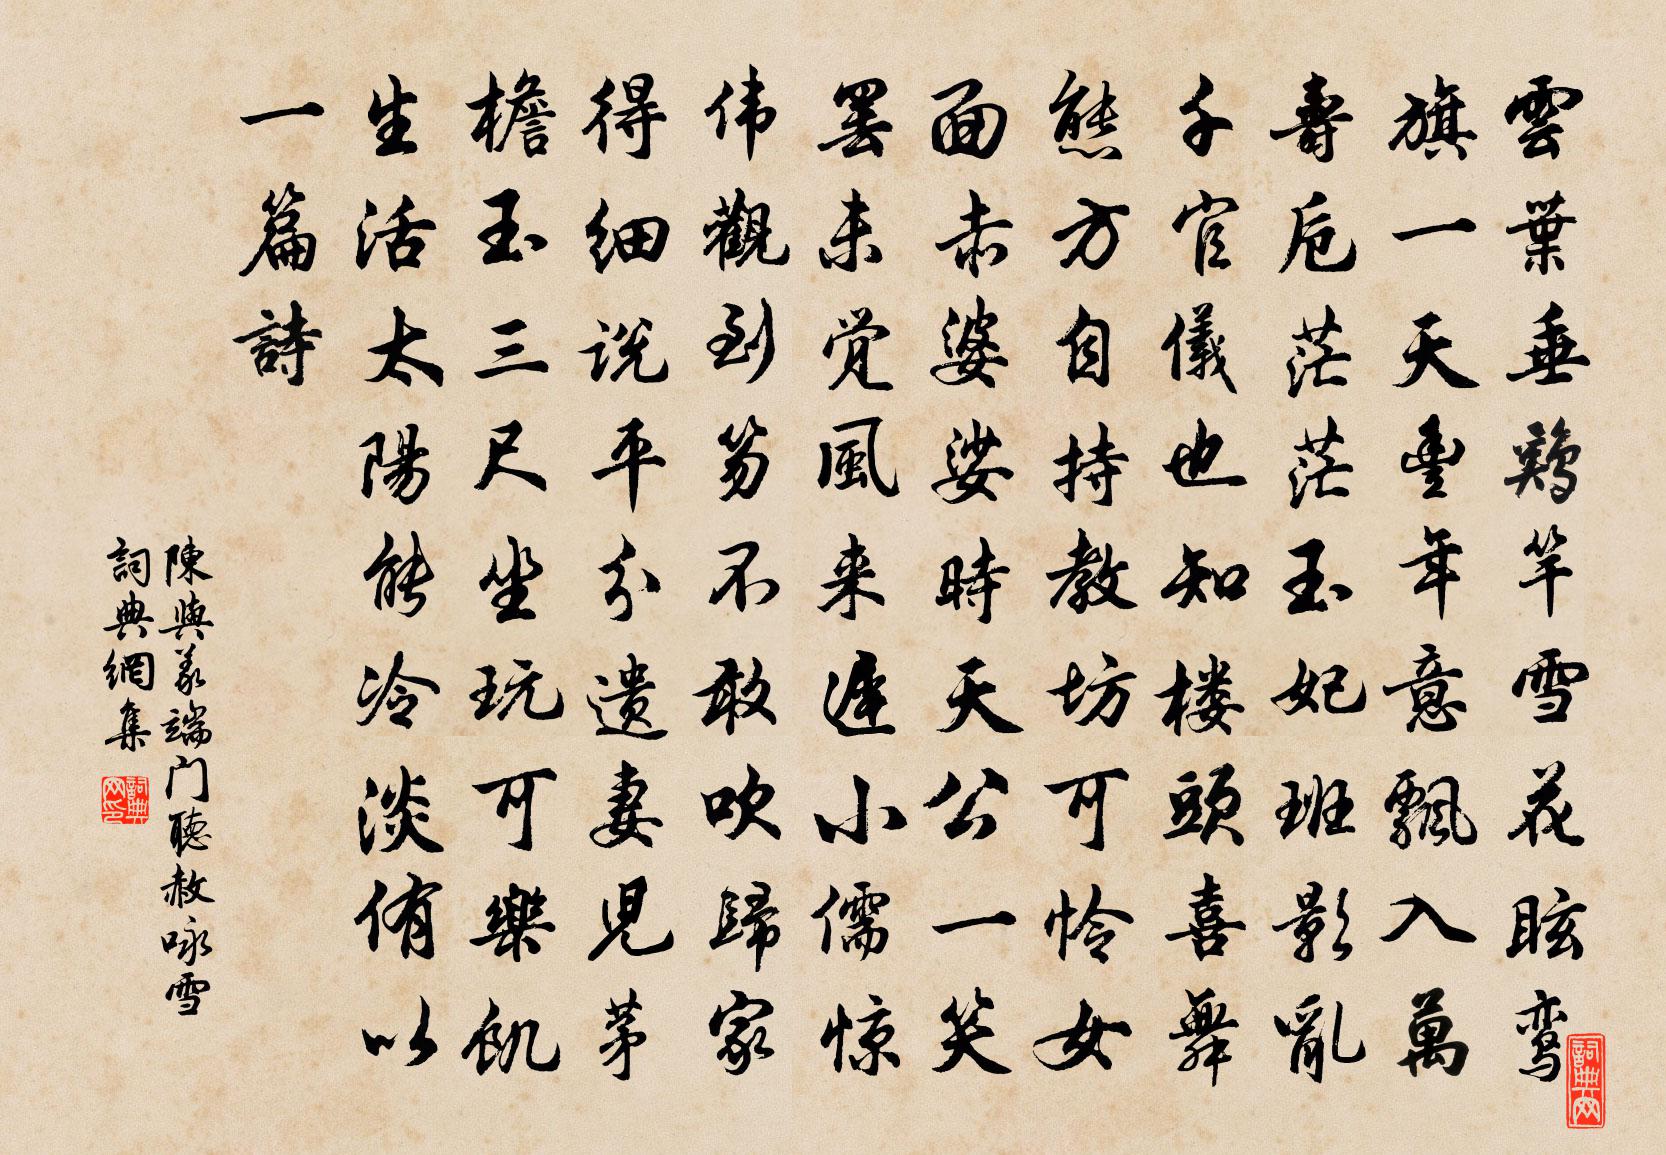 雲葉垂鶏竿雪花眩鸾
旗一天豊年意飄入萬
壽卮茫茫玉妃班影亂
千官儀也知楼頭喜舞
態方自持教坊可怜女
面赤婆娑時天公一笑
罢未觉風来遲小儒惊
伟觀到笏不敢吹歸家
得细说平分遗妻児茅
檐玉三尺坐玩可樂飢
生活太陽能冷淡侑以
一篇詩
陳與義端门聴赦咏雪
詞典網集
詞典网印
詞典网